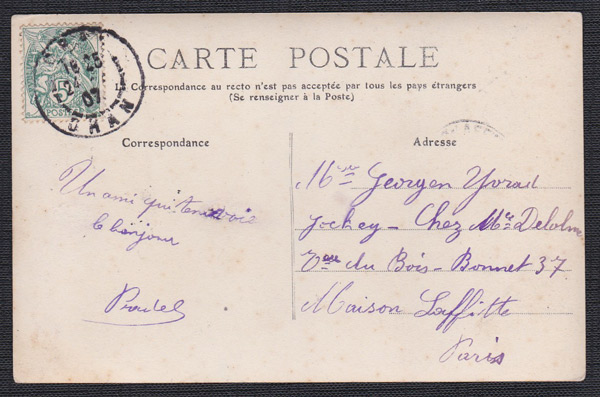 CARTE POSTALE
La Correspondance au recto n'est pas acceptée par tous les pays étrangers
(Se renseigner à la Poste)
Correspondance
Un ami qui t'envoie
le bonjour
Adresse
Georgen
Jockey - Chez Mr Delolme
du Bois - Bonnet 37
Maison Laffitte
Paris